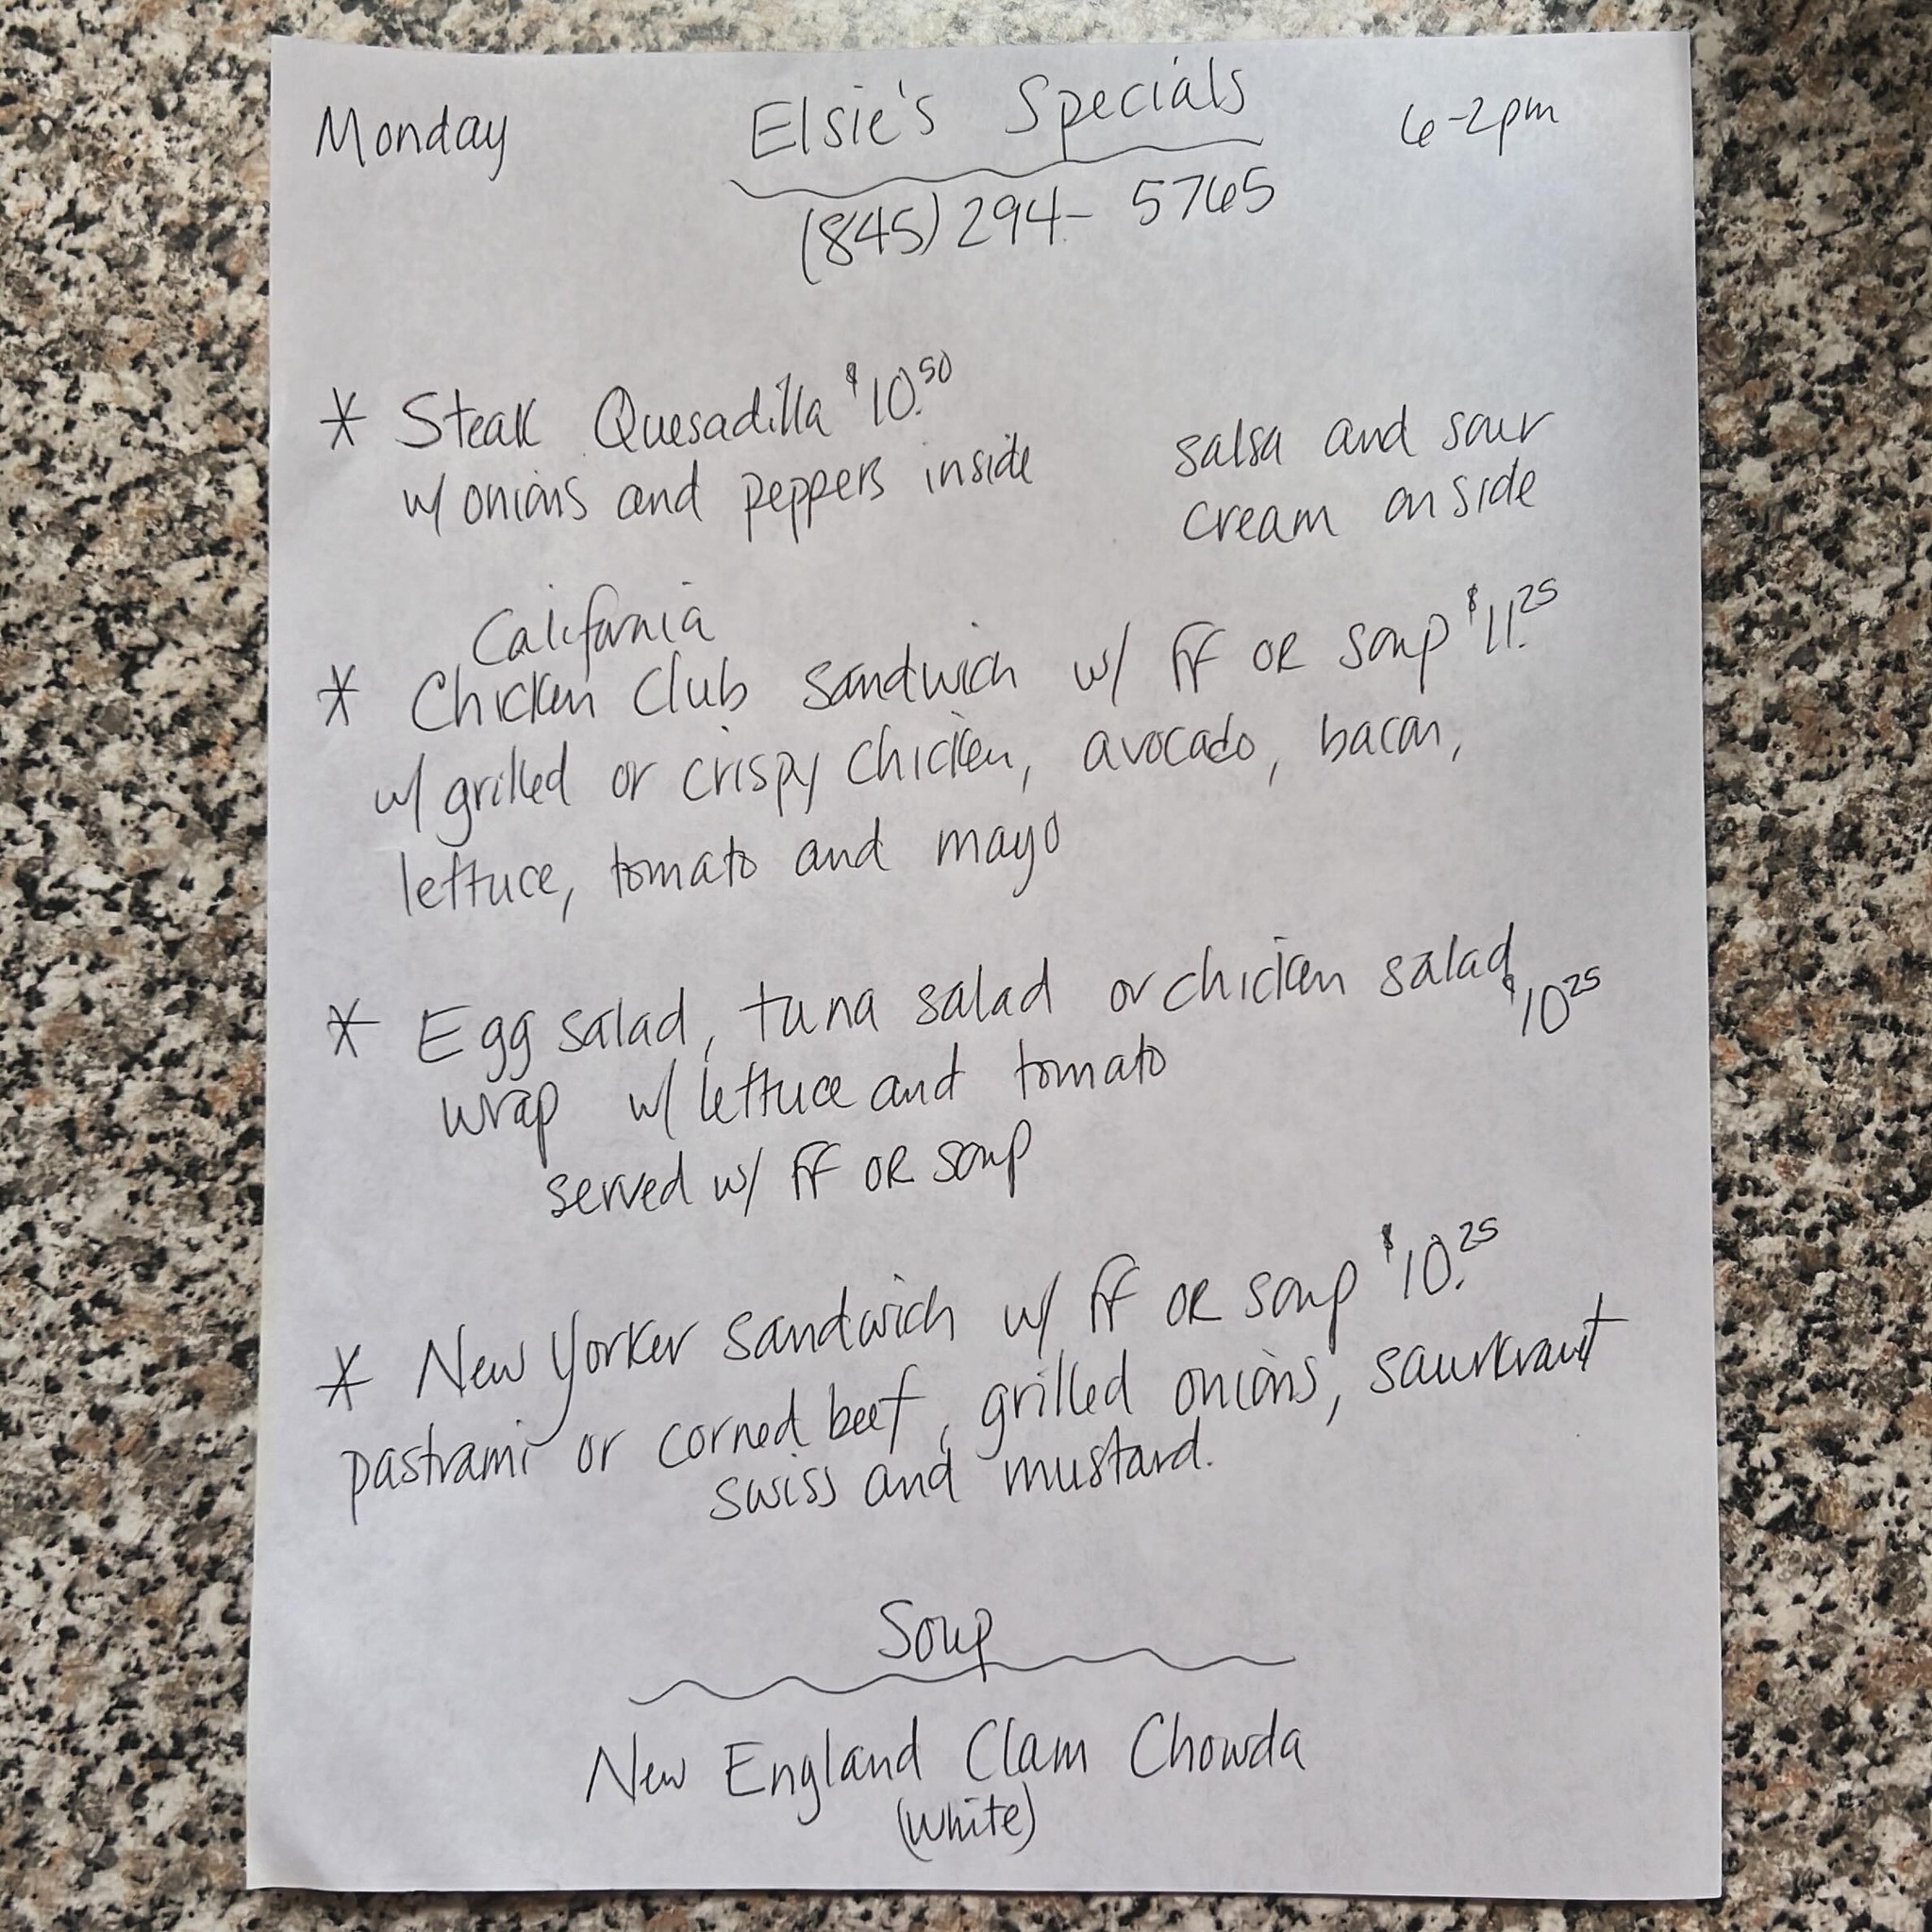 Monday Elsie's Specials 6-2pm
(845) 294-5765
* Steak Quesadilla $10.50
w/ onions and peppers inside
salsa and sour
cream on side
California
* Chicken Club Sandwich w/ FF OR Soup $11.25
w/ grilled or crispy chicken, avocado, bacon,
lettuce, tomato and mayo
* Egg salad, tuna salad or chicken salad $10 25
wrap w/ lettuce and tomato
served w/ FF OR soup
* New Yorker Sandwich w/ FF OR Soup $10.25
pastrami or corned beef, grilled onions, saurkraut
swiss and mustard.
Soup
New England Clam Chowda
(white)